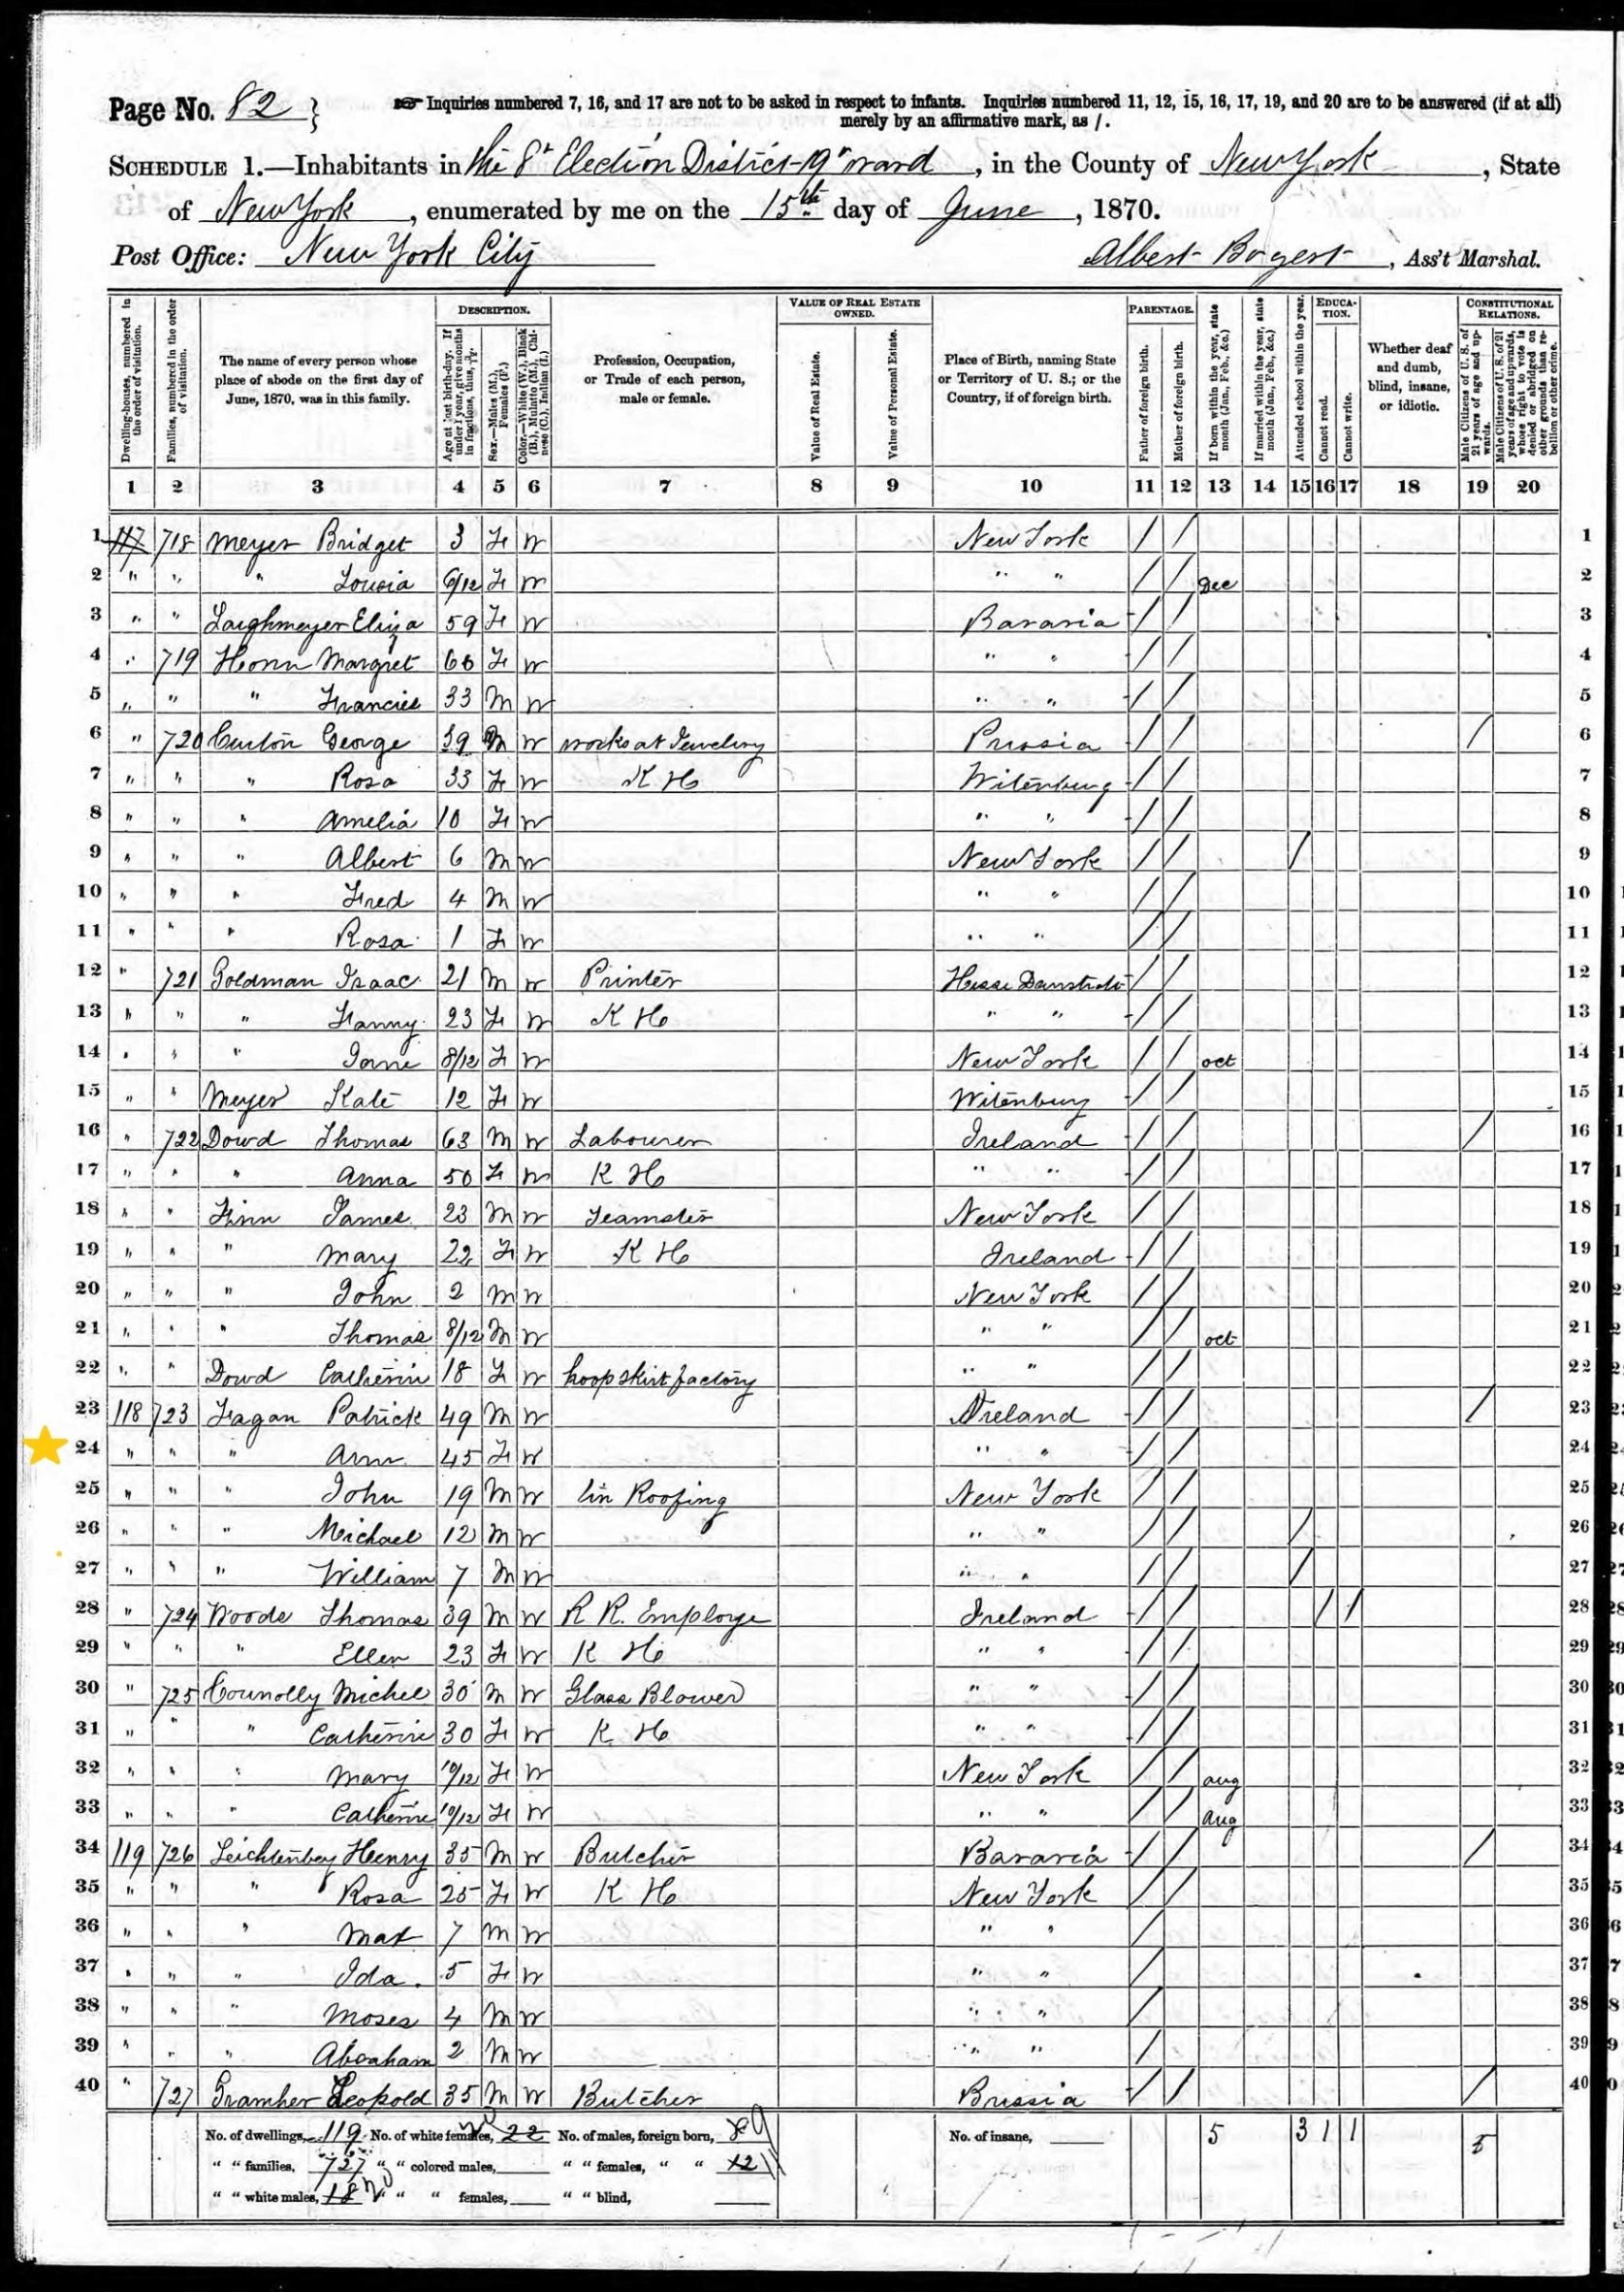 Page No. 82 }
☞ Inquiries numbered 7, 16, and 17 are not to be asked in respect to infants. Inquiries numbered 11, 12, 15, 16, 17, 19, and 20 are to be answered (if at all)
merely by an affirmative mark, as /.
SCHEDULE 1.—Inhabitants in the 8th Election District 19th ward, in the County of New York, State
of New York, enumerated by me on the 15th day of June, 1870.
Post Office: New York City Albert Bogert, Ass't Marshal.
Dwelling-houses, numbered in the order of visitation.
Families, numbered in the order of visitation.
The name of every person whose place of abode on the first day of June, 1870, was in this family.
DESCRIPTION.
Age at last birth-day. If under 1 year, give months in fractions, thus, 3/12.
Sex.—Males (M.), Females (F.)
Color.—White (W.), Black (B.), Mulatto (M.), Chinese (C.), Indian (I.)
Profession, Occupation, or Trade of each person, male or female.
VALUE OF REAL ESTATE OWNED.
Value of Real Estate.
Value of Personal Estate.
Place of Birth, naming State or Territory of U. S.; or the Country, if of foreign birth.
PARENTAGE.
Father of foreign birth.
Mother of foreign birth.
If born within the year, state month (Jan., Feb., &c.)
If married within the year, state month (Jan., Feb., &c.)
Attended school within the year.
EDUCATION.
Cannot read.
Cannot write.
Whether deaf and dumb, blind, insane, or idiotic.
CONSTITUTIONAL RELATIONS.
Male Citizens of U. S. of 21 years of age and upwards.
Male Citizens of U. S. of 21 years of age and upwards, whose right to vote is denied or abridged on other grounds than rebellion or other crime.
1 2 3 4 5 6 7 8 9 10 11 12 13 14 15 16 17 18 19 20
1 117 718 Meyer Bridget 3 F W New York / / 1
2 " " " Lousia 6/12 F W " " / / Dec 2
3 " " Laighmeyer Eliza 59 F W Bavaria / / 3
4 " 719 Horn Margret 66 F W " " / / 4
5 " " " Francies 33 M W " " / / 5
6 " 720 Curton George 39 M W works at Jewelery Prussia / / / 6
7 " " " Rosa 33 F W K H Witenburg / / 7
8 " " " Amelia 10 F W " " / / 8
9 " " " Albert 6 M W New York / / / 9
10 " " " Fred 4 M W " " / / 10
11 " " " Rosa 1 F W " " / / 11
12 " 721 Goldman Isaac 21 M W Printer Hesse Darmstadt / / 12
13 " " " Fanny 23 F W K H " " / / 13
14 " " " Jane 8/12 F W New York / / oct 14
15 " " Meyer Kate 12 F W Witenburg / / 15
16 " 722 Dowd Thomas 63 M W Labourer Ireland / / / 16
17 " " " Anna 50 F W K H " " / / 17
18 " " Finn James 23 M W Teamster New York / / 18
19 " " " Mary 22 F W K H Ireland / / 19
20 " " " John 2 M W New York / / 20
21 " " " Thomas 8/12 M W " " / / oct 21
22 " " Dowd Catherin 18 F W hoop skirt factory " " / / 22
23 118 723 Fagan Patrick 49 M W Ireland / / / 23
24 " " " Ann 45 F W " " / / 24
25 " " " John 19 M W tin Roofing New York / / 25
26 " " " Michael 12 M W " " / / / 26
27 " " " William 7 M W " " / / / 27
28 " 724 Woods Thomas 39 M W R R. Employe Ireland / / / / 28
29 " " " Ellen 23 F W K H " " / / 29
30 " 725 Connolly Michel 30 M W Glass Blower " " / / 30
31 " " " Catherine 30 F W K H " " / / 31
32 " " " Mary 10/12 F W New York / / aug 32
33 " " " Catherine 10/12 F W " " / / aug 33
34 119 726 Leichtenberg Henry 35 M W Butcher Bavaria / / / 34
35 " " " Rosa 25 F W K H New York / / 35
36 " " " Max 7 M W " " / 36
37 " " " Ida 5 F W " " / 37
38 " " " Moses 4 M W " " / 38
39 " " " Abraham 2 M W " " / 39
40 " 727 Leopold 35 M W Butcher Prussia / / / 40
No. of dwellings, 119 No. of white females, 22 No. of males, foreign born, 9 No. of insane, 5 3 1 1 5
" " families, 727 " " colored males, " " females, " " 12
" " white males, 18 " " " females, " " blind,